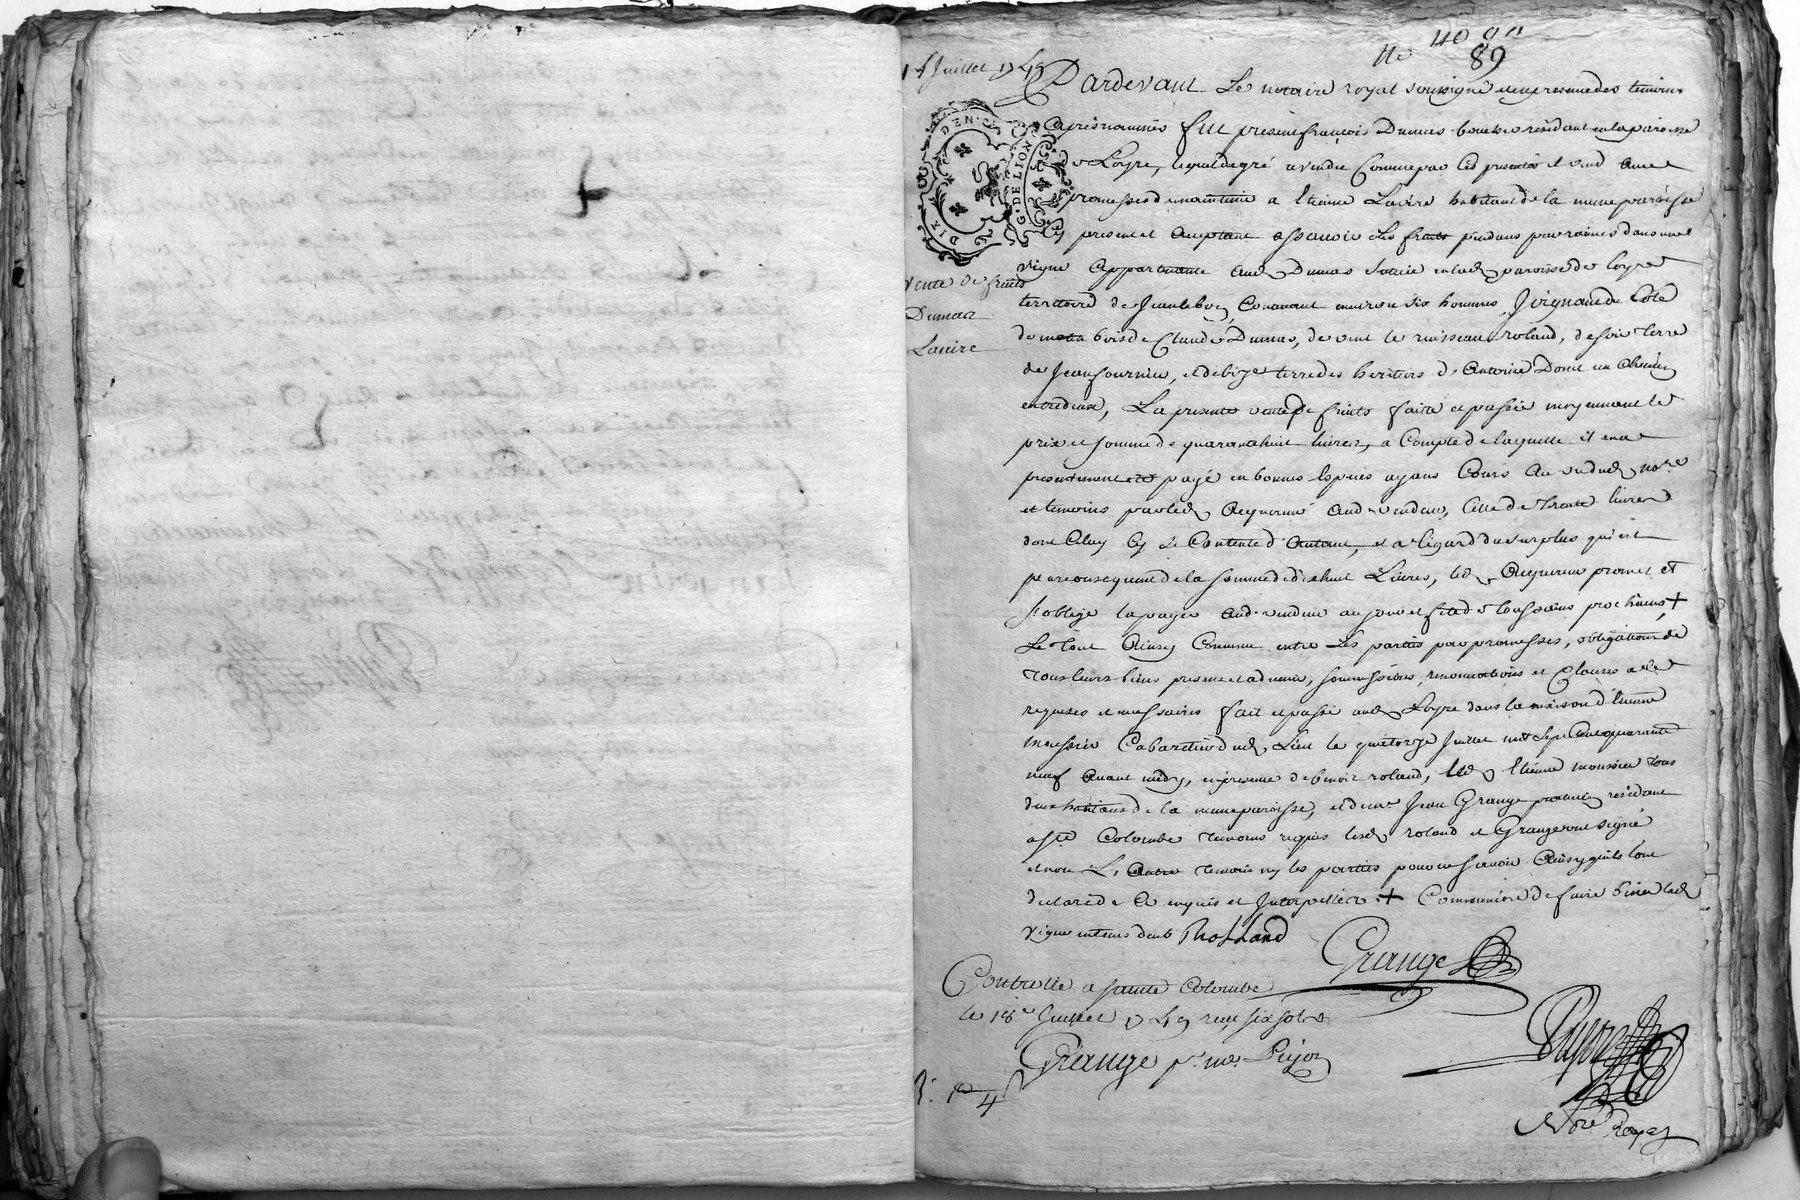 89
14 Juillet 1749
Pardevant Le notaire royal soussigné et en presence des temoins
DIX DEN.
G. DE LION
Apres nommés fut present françois Dumas résidant en la paroisse
de Loyre, lequel de gré a vendu Comme par ces presentes il vend avec
promesses de maintenir a Etienne Lavire habitant de la meme paroisse
cy present et acceptant assavoir les fruits pendans par raines dans une
vigne Appartenante aud. Dumas située en lad. paroisse de loyre
Vente de fruits
Dumas
Lavire
territoire de Contenant environ six hommes, Joignant du Coté
de matin bois de Claude Dumas, de vent le ruisseau roland, de soir terre
de Jean fournier, et de bize terre des heritiers d'Antoine Donet un Chemin
entredeux, La presente vente de fruits faitte et passée moyennant le
prix et somme de quarante huit livres, a Compte de laquelle il en a
presentement eté payé en bonnes Especes ayans Cours Au vu dud. not.re
et temoins par led. Acquereur Aud. vendeur, Celle de Trente livres
dont Celuy Cy se Contente d'Autant, et a l'egard du surplus qui est
par consequent de la somme de dix huit Livres, led. Acquereur promet et
s'oblige la payer aud. vendeur au jour et fete de toussains prochains +
Le Tout Ainsy Convenu entre Les parties par promesses, obligations de
Tous leurs biens presens et advenir, soumissions, renonciations et Clauses a ce
requises et necessaires fait et passé aud. Loyre dans la maison d'Etienne
moussier Cabaretier dud. Lieu le quatorze Juillet mil sept Cent quarante
neuf Avant midy, en presence de benoit roland, led. Etienne moussier Tous
deux habitans de la meme paroisse, et de me. Jean Grange résidant
a ste Colombe Temoins requis lesd. roland et Grange ont signé
et non L'Autre temoin ny les parties pour ne scavoir Ainsy qu'ils l'ont
declaré de Ce enquis et Interpellés. + Comme aussi de faire biner lad.
vigne en tems deub Rolland
Grange
Controllé a sainte Colombe
le 18e Juillet 1749 reçu six sols
Grange pr. mr. Pujon
Nore Royal